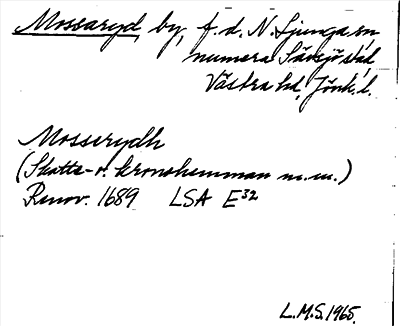 Mossaryd, by, f.d. N. Ljunga sn,
numera Sävsjö stad,
Västra hd, Jönk. l.
Mosserydh
(Skatte- o. kronohemman m.m.)
Renov. 1689 LSA E32
L.M.S. 1965.